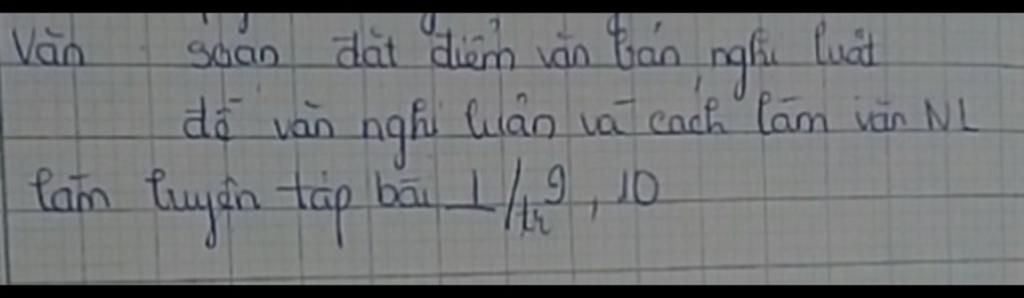 Văn soạn đặt điểm văn bản nghị luật
đề văn nghị luận và cách làm văn NL
làm luyện tập bài 1/tr 9, 10